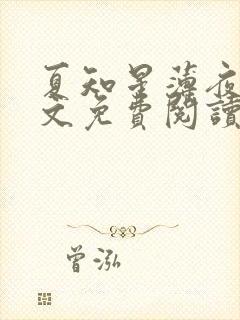 夏知星薄夜
文免費閱讀
曾泓